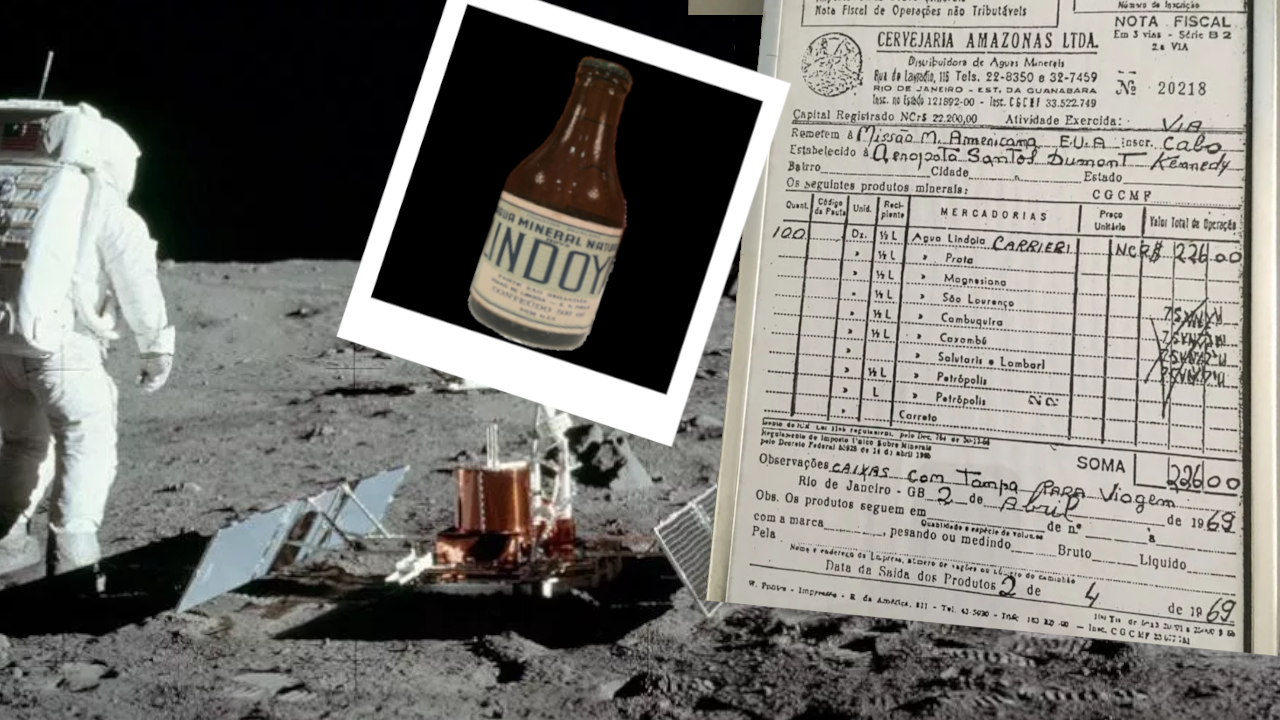 ÁGUA MINERAL NATU
LINDOY
CONTEÚDO 500
Nota Fiscal de Operações não Tributáveis
Número de Inscrição
NOTA FISCAL
Em 3 vias - Série B 2
2.a VIA
Nº 20218
CERVEJARIA AMAZONAS LTDA.
Distribuidora de Aguas Minerais
Rua do Lavradio, 116 Tels. 22-8350 e 32-7459
RIO DE JANEIRO - EST. DA GUANABARA
Insc. no Estado 121892-00 - Insc. CGCMF 33.522.749
Capital Registrado NCr$ 22.200,00 Atividade Exercida: VIA
Remetem à Missão M. Americana E.U.A inscr. Cabo
Estabelecido à Aeropota Santos Dumont Kennedy
Bairro Cidade Estado
Os seguintes produtos minerais: CGCMF
Quant. Código da Pauta Unid. Recipiente MERCADORIAS Preço Unitário Valor Total da Operação
100 Dz. ½ L Agua Lindoia CARRIERI NCR$ 226.00
" ½ L " Prata
" ½ L " Magnesiana
" ½ L " São Lourenço
" ½ L " Cambuquira
" ½ L " Caxambú
" " Salutaris e Lambari
" ½ L " Petrópolis
" L " Petrópolis
" Carreto
SOMA 226 00
Regulamento do Imposto Único Sobre Minerais
Observações CAIXAS com Tampa PARA Viagem
Rio de Janeiro - GB 2 de Abril de 1969
Obs. Os produtos seguem em de nº à
Quantidade e espécie de volumes
com a marca pesando ou medindo Bruto Líquido
Pela
Data da Saída dos Produtos 2 de 4 de 1969